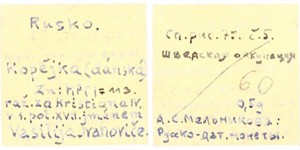 Rusko.
Kopějka (dánská
Zn:
raž. za Kristiana IV.
v 1. pol. XVII. jménem
Vasilija Ivanoviče.
Сп. рис. 75. с. 5.
Шведская оккупация
60
0,5g
А.С. Мельникова:
Русско-дат. монеты.